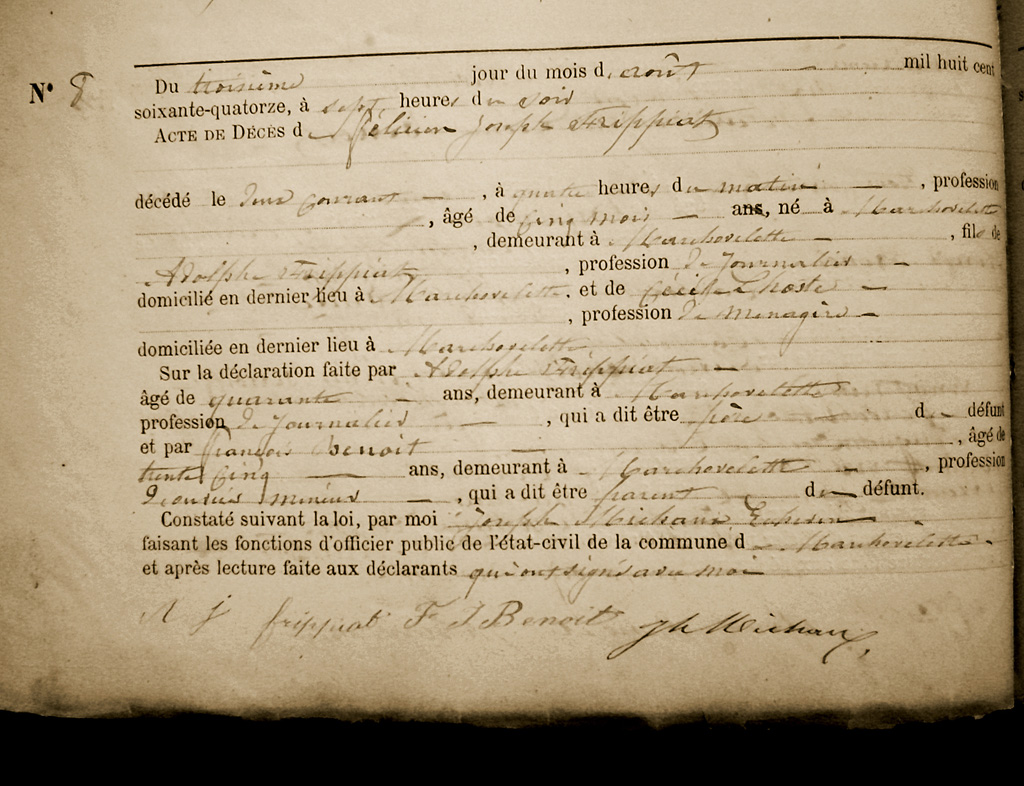 N° 8
Du troisième jour du mois d'août mil huit cent
soixante-quatorze, à sept heures du soir
ACTE DE DÉCÈS de Félicien Joseph Frippiat
décédé le deux courant, à quatre heures du matin, profession
, âgé de cinq mois ans, né à Marchovelette
, demeurant à Marchovelette, fils de
Adolphe Frippiat, profession de Journalier
domicilié en dernier lieu à Marchovelette, et de Cécile Lhoste
, profession de Menagère
domiciliée en dernier lieu à Marchovelette
Sur la déclaration faite par Adolphe Frippiat
âgé de quarante ans, demeurant à Marchovelette
profession de Journalier, qui a dit être père du défunt
et par François Benoit, âgé de
trente cinq ans, demeurant à Marchovelette, profession
d'ouvrier mineur, qui a dit être parent du défunt.
Constaté suivant la loi, par moi Joseph Michaux Echevin
faisant les fonctions d'officier public de l'état-civil de la commune de Marchovelette
et après lecture faite aux déclarants qui ont signé avec moi
A J frippiat F J Benoit Jh Michaux,